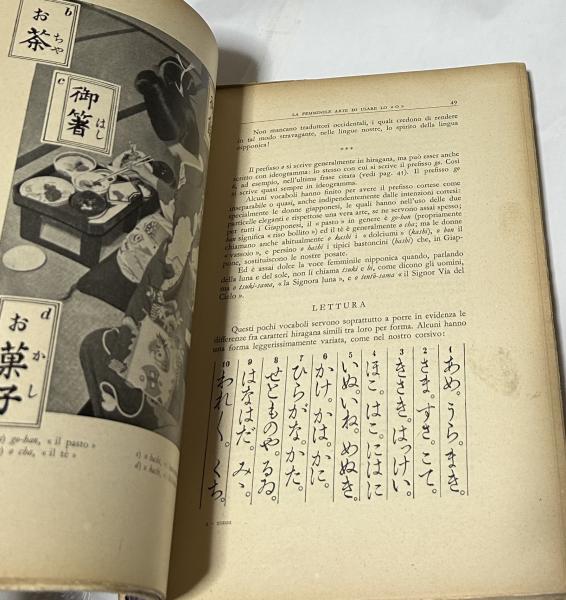 b
お茶
ちや
c
御箸
はし
d
お菓子
かし
go-han, « il pasto »
o cha, « il tè »
c) o hashi, «
d) o kashi, «
LA FEMMINILE ARTE DI USARE LO « O »
49
Non mancano traduttori occidentali, i quali credono di rendere
in tal modo stravagante, nelle lingue nostre, lo spirito della lingua
nipponica!
***
Il prefisso o si scrive generalmente in hiragana, ma può esser anche
scritto con ideogramma: lo stesso con cui si scrive il prefisso go. Così
è, ad esempio, nell'ultima frase citata (vedi pag. 41). Il prefisso go
si scrive quasi sempre in ideogramma.
Alcuni vocaboli hanno finito per avere il prefisso cortese come
inseparabile o quasi, anche indipendentemente dalle intenzioni cortesi:
specialmente le donne giapponesi, le quali hanno nell'uso delle due
particelle eleganti e rispettose una vera arte, se ne servono assai spesso;
per tutti i Giapponesi, il « pasto » in genere è go-ban (propriamente
han significa « riso bollito ») ed il tè è generalmente o cha; ma le donne
chiamano anche abitualmente o kashi i « dolciumi » (kashi), o bon il
« vassoio », e persino o hashi i tipici bastoncini (hashi) che, in Giap-
pone, sostituiscono le nostre posate.
Ed è assai dolce la voce femminile nipponica quando, parlando
della luna e del sole, non li chiama tsuki e hi, come dicono gli uomini,
ma o tsuki-sama, « la Signora luna », e o tentō-sama « il Signor Via del
Cielo ».
LETTURA
Questi pochi vocaboli servono soprattutto a porre in evidenza le
differenze fra caratteri hiragana simili tra loro per forma. Alcuni hanno
una forma leggerissimamente variata, come nel nostro corsivo:
1 あめ。うら。まき。
2 さま。すき。こて。
3 きさき。はっけい。
4 ほこ。はこ。にはに
5 いぬ。いね。めぬき。
6 かけ。かは。かに。
7 ひらがな。かた。
8 せとものや。るゐ。
9 はなはだ。みゝ。
10 われ〱。くち。